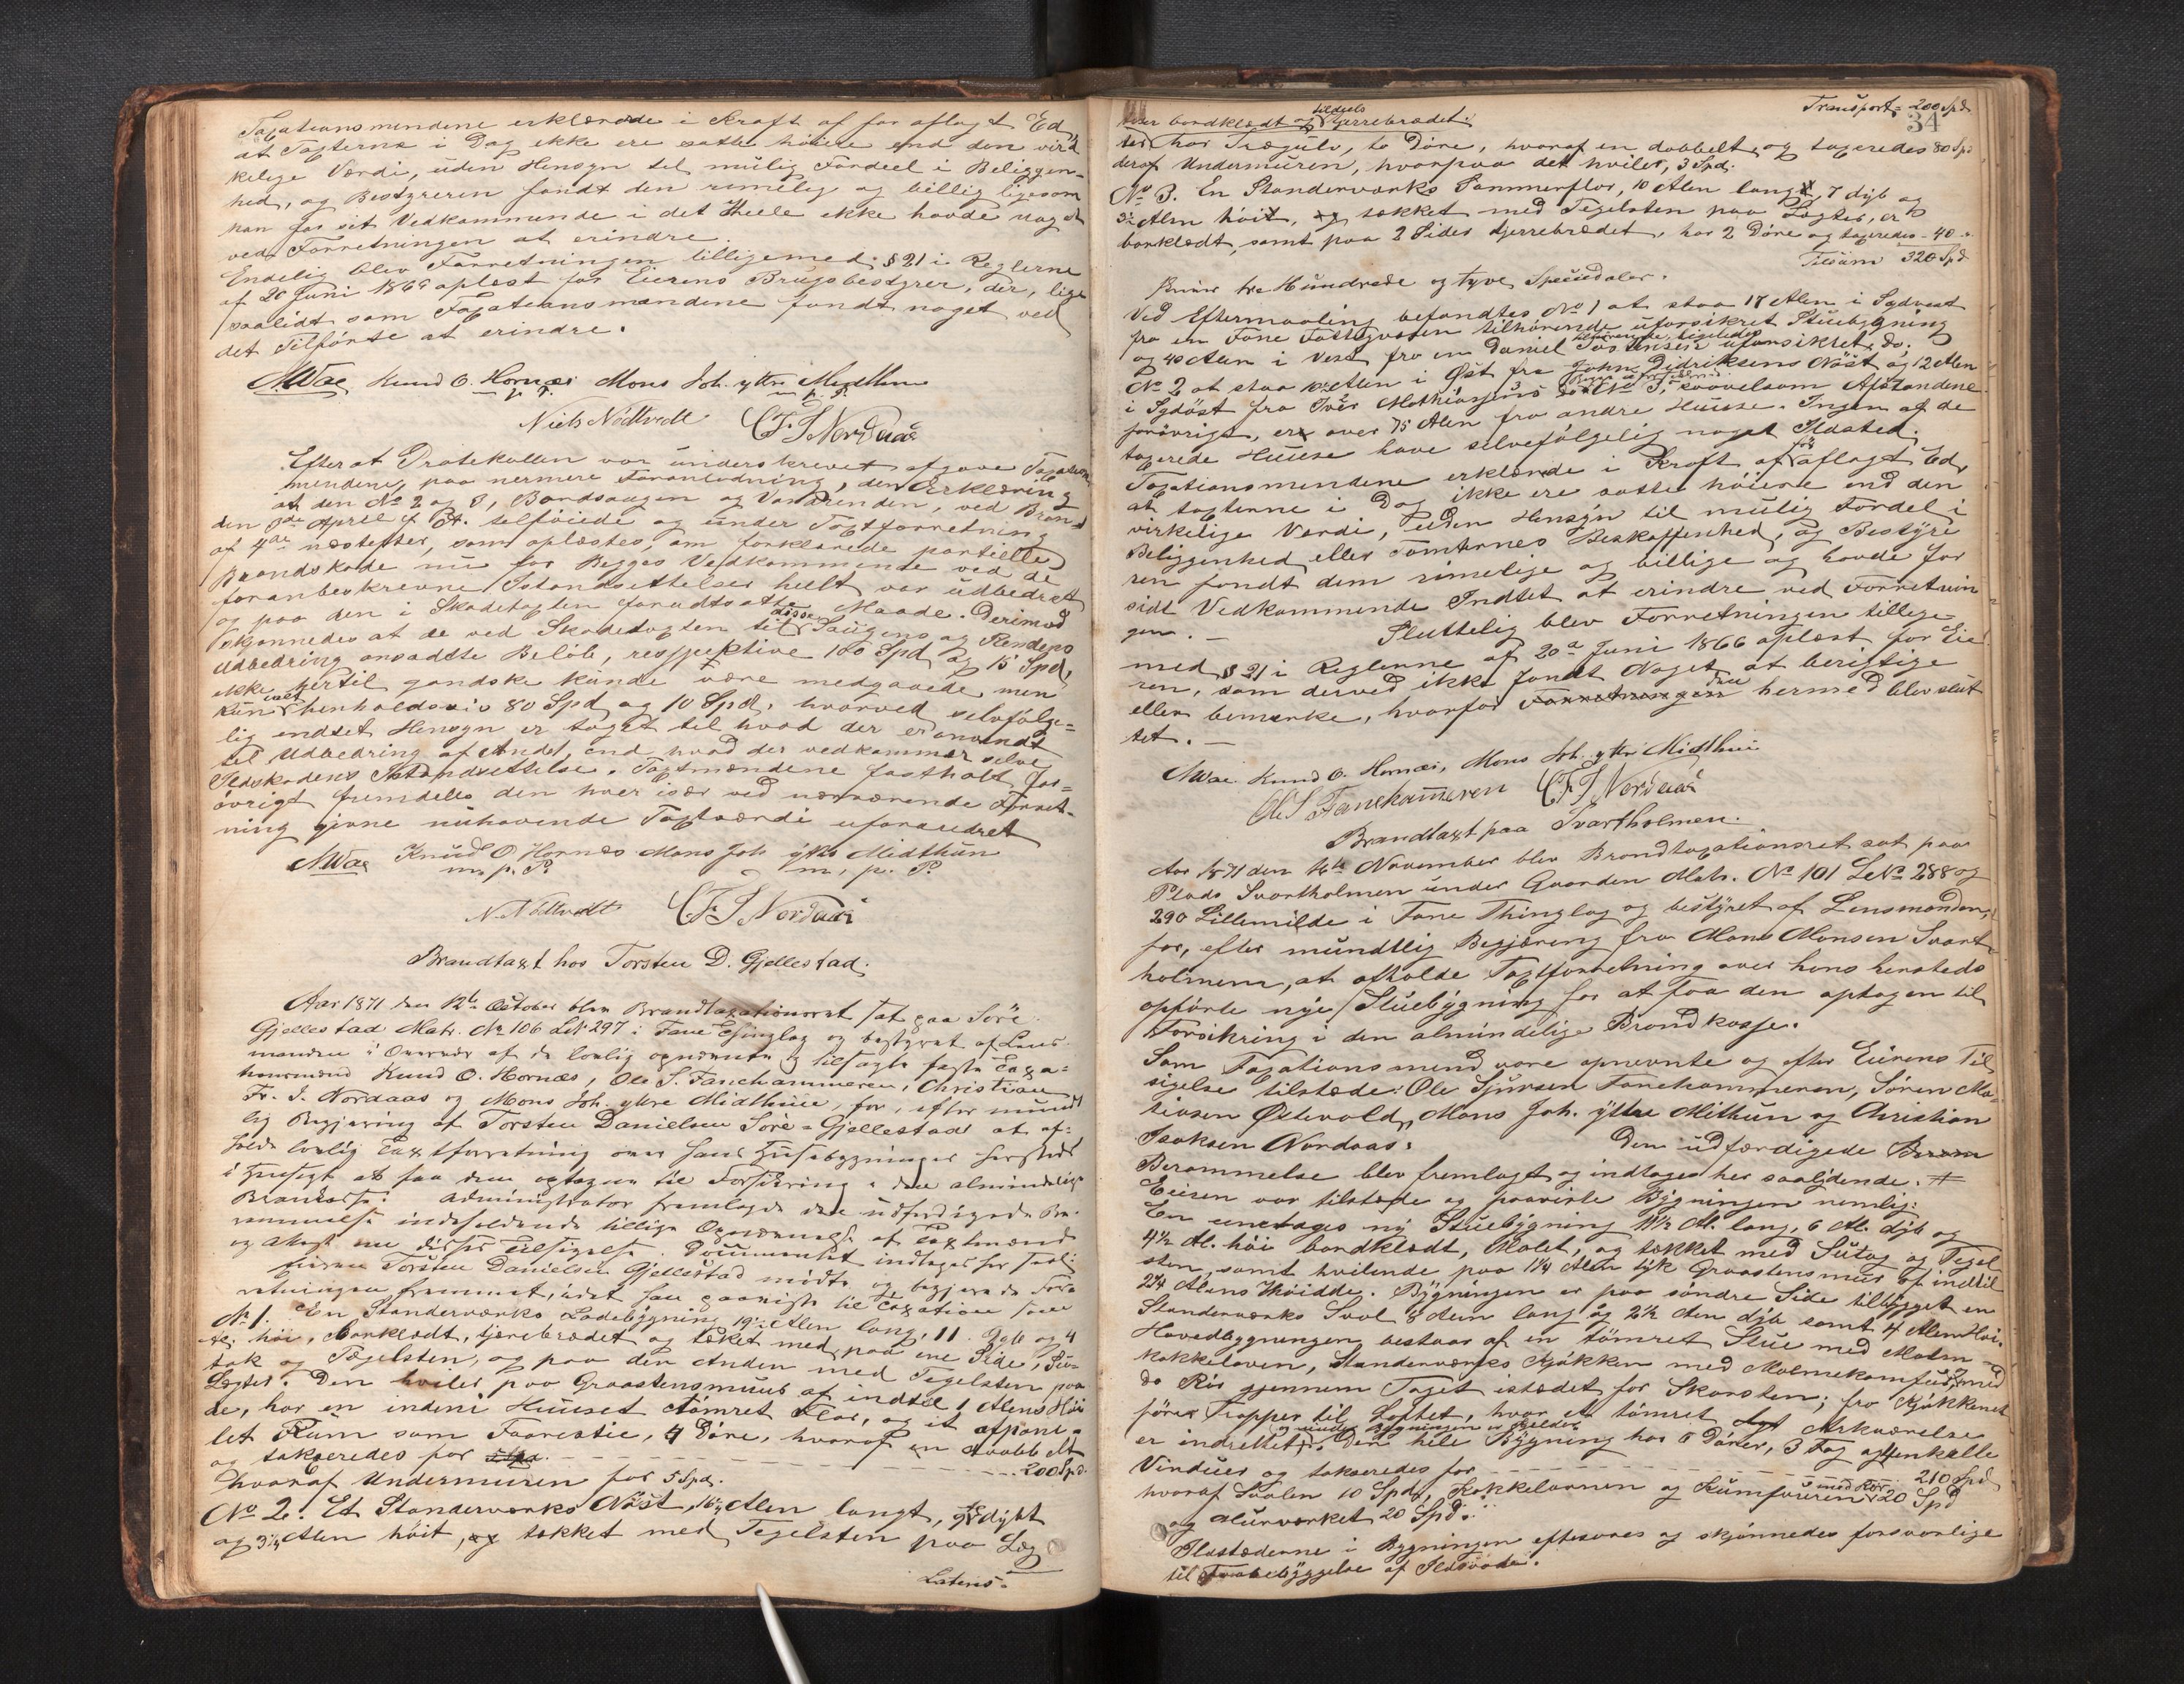 Taxationsmendene erklærede i Kraft af før aflagt Ed,
at Taxterne i Dag ikke ere satte høiere end den virk-
kelige Værdi, uden Hensyn til mulig Fordeel i Beliggen-
hed, og Bestyreren fandt den rimelig og billig ligesom
han for sit Vedkommende i det Heele ikke havde noget
ved Forretningen at erindre.
Endelig blev Forretningen tilligemed § 21 i Reglerne
af 20 Juni 1866 oplæst for Eierens Brugsbestyrer, der, lige
saalidt som Taxationsmændene fandt noget ved
det Tilførte at erindre.
AWae Knud O. Hornæs Mons Joh. yttre Midthun
m. p. P. m. p. P.
Niels Nödtvedt CFJNordaas
Efterat Protokollen var underskrevet afgave Taxations
mendene, paa nermere Foranledning, den Erklæring
at den No 2 og 8, Bordsaugen og Vandrenden, ved Brand
den 3die April d. A. tilføiede og under Taxtforretning
af 4de næstefter, som oplæstes, om forklarede partielle
Brandskade nu for Begges Vedkommende ved de
foranbeskrevne Istandsettelser heelt var udbedret
og paa den i Skadetaxten forudsatte Maade. Derimod
skjønnedes at de ved Skadetaxten til disse Saugens og Rendens
Udbedring ansadtte Beløb, respektive 100 Spd og 15 Spd,
ikke hertil gandske kunde være medgaaede, men
kun ialt henholdsvis 80 Spd og 10 Spd, hvorved selvfølge-
lig endset Hensyn er taget til hvad der er anvendt
til Udbedring af Andet, end hvad der vedkommer selve
Ildskadens Istandsettelse. Taxtmændene fastholdt for-
øvrigt fremdeles den hver især ved nærværende Forret-
ning givne nuhavende Taxtværdi uforandret
AWae Knud O Hornæs Mons Joh yttre Midthun
m. p. P. m. p. P.
N. Nödtvedt CFJNordaas
Brandtaxt hos Torsten D. Gjellestad.
Aar 1871 den 12te October blev Brandtaxationsret sat paa Søre
Gjellestad Matr. No 106 LNo 297 i Fane Thinglag og bestyret af Lens-
manden i Overvær af de lovlig opnævnte og tilsagte faste Taxa-
tionsmænd Knud O. Hornæs, Ole S. Fanehammeren, Christian
Fr. J. Nordaas og Mons Joh. yttre Midthun, for, efter mundt
lig Begjæring af Torsten Danielsen Søre-Gjellestad at af-
holde lovlig Taxtforretning over hans Huusebygninger hersteds
i Hensigt at faa dem optagen til Forsikring i den almindelige
Brandkasse. Administrator fremlagde den udferdigede Be-
rammelse indeholdende tillige Opnævnelse af Taxtmænd
og Attest om disses Tilsigelse. Documentet indtages her saal:
Eieren Torsten Danielsen Gjellestad mødte og begjerede For-
retningen fremmet, idet han paaviste til Taxation som
No 1. En Standerværks Ladebygning 19½ Alen lang, 11. dyb og 4
Al. høi, borklædt, tjærebrædet og tækket med, paa ene Side, Su-
tak og Tægelsten, og paa den Anden med Tegelsten paa
Lægter. Den hviler paa Graastensmuur af indtil 1 Alens Høi
de, har en indeni Huuset tømret Flor, og et afpane-
let Rum som Faarestie, 4 Døre, hvoraf en dobbelt
og taxeredes for - - - - - 200 Spd.
hvoraf Undermuren for 5 Spd.
No 2. Et Standerværks Nöst, 16½ Alen langt, dybt
og 3¼ Alen høit, og tækket med Tegelsten paa Læg
Lateris.
Transport = 200 Spd
34
ter bordklædt og tildeels tjerrebrædet.
ter, har Trægulv, to Døre, hvoraf en dobbelt, og taxeredes 80 Spd
deraf Undermuren, hvorpaa det hviler, 3 Spd.
No 3. En Standerværks Sommerflor, 10 Alen lang, 7 dyb og
3½ Alen høi, og tækket med Tegelsten paa Lægter, er
borklædt, samt paa 2 Sider tjerrebrædet, har 2 Døre og taxeredes - 40 -
Tilsam 320 Spd
Skriver tre Hundrede og tyve Speciedaler.
Ved Eftermaaling befandtes No 1 at staa 17 Alen i Sydvest
fra en Fane Fattigvæsen tilhørende uforsikret Stuebygning
og 40 Alen i Vest fra en Daniel Torstensen tilhørende, ligeledes uforsikret do.
No 2 at staa 10½ Alen i Øst fra John Didriksens Nöst og 12 Alen
i Sydöst fra Iver Mathiasens do. No 3, saavelsom Afstandene
forövrigt, ere over 75 Alen fra andre Huuse. Ingen af de
taxerede Huuse have selvefölgelig noget Ildsted.
Taxationsmendene erklærede i Kraft af før aflagt Ed,
at taxterne i Dag ikke ere satte höiere end den
virkelige Værdi, uden Hensyn til mulig Fordel i
Beliggenhed eller Tomternes Beskaffenhed, og Bestyre
ren fandt dem rimelige og billige og havde for
sidt Vedkommende Indtet at erindre ved Forretnin
gen. — Sluttelig blev Forretningen tillige-
med § 21 i Reglerne af 20de Juni 1866 oplæst for Eie
ren, som derved ikke fandt Noget at berigtige
eller bemærke, hvorfor Forretningen hermed blev slut
tet. —
AWae Knud O. Hornæs, Mons Joh. yttre Midthun
Ole S Fanehammeren CFJNordaas
Brandtaxt paa Svartholmen.
Aar 1871 den 16de November blev Brandtaxationsret sat paa
Plads Svartholmen under Gaarden Matr. No 101 LNo 288 og
290 Lillemilde i Fane Thinglag og bestyret af Lensmanden,
for, efter mundtlig Begjæring fra Mons Monsen Svart-
holmen, at afholde Taxtforretning over hans hersteds
opførte nye Stuebygning for at faa den optagen til
Forsikring i den almindelige Brandkasse.
Som Taxationsmend vare opnevnte og efter Eierens Til
sigelse tilstæde: Ole Sjursen Fanehammeren, Søren Ma-
tiasen Østevold, Mons Joh. yttre Mithun og Christian
Isaksen Nordaas. Den udfærdigede Beram
Berammelse blev fremlagt og indtages her saalydende. #
Eieren var tilstede og paaviste Bygningen nemlig:
En eenetages ny Stuebygning 11½ Al. lang, 6 Al. dyb og
4½ Al. höi bordklædt, Malet, og tækket med Sutag og Tegel
sten, samt hvilende paa 1¼ Alen tyk Graastensmur af indtil
2¼ Alens Høidde. Bygningen er paa söndre Side tilbygget en
Standerværks Sval 8 Alen lang og 2½ Alen dyb samt 4 Alen Høi.
Hovedbygningen bestaar af en tömret Stue med Malm-
kakkelovn, Standerværks Kjøkken med Malmekomfur og med
do Rör gjennem Taget istædet for Skorsten; fra Kjøkkenet
förer Trapper til Loftet, hvor et tömret Arkværelse
er indrettet, og under Bygningen er Kjelder. Den hele Bygning har 6 Dører, 3 Fag og enkelte
Vinduer og taxeredes for - - - - - 210 Spd
hvoraf Svalen 10 Spd, Kakkelovnen og Kumfuuren med Rør 20 Spd
og Muurværket 20 Spd.
Ildstæderne i Bygningen eftersaaes og skjønnedes forsvarlige
til Forebyggelse af Ildsvaade.